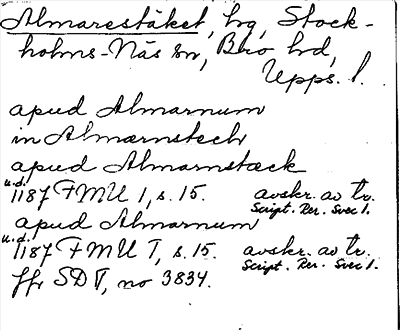 Almarestäket, hg, Stock-
holms-Näs sn, Bro hd,
Upps. l.
apud Almarnum
in Almarnstech
apud Almarnstæck
u.d.
1187 FMU I, s. 15. avskr. av tr.
Script. Rer. Svec I.
apud Almarnum
u.d.
1187 FMU I, s. 15. avskr. av tr.
Script. Rer. Svec I.
jfr SD V, no 3834.